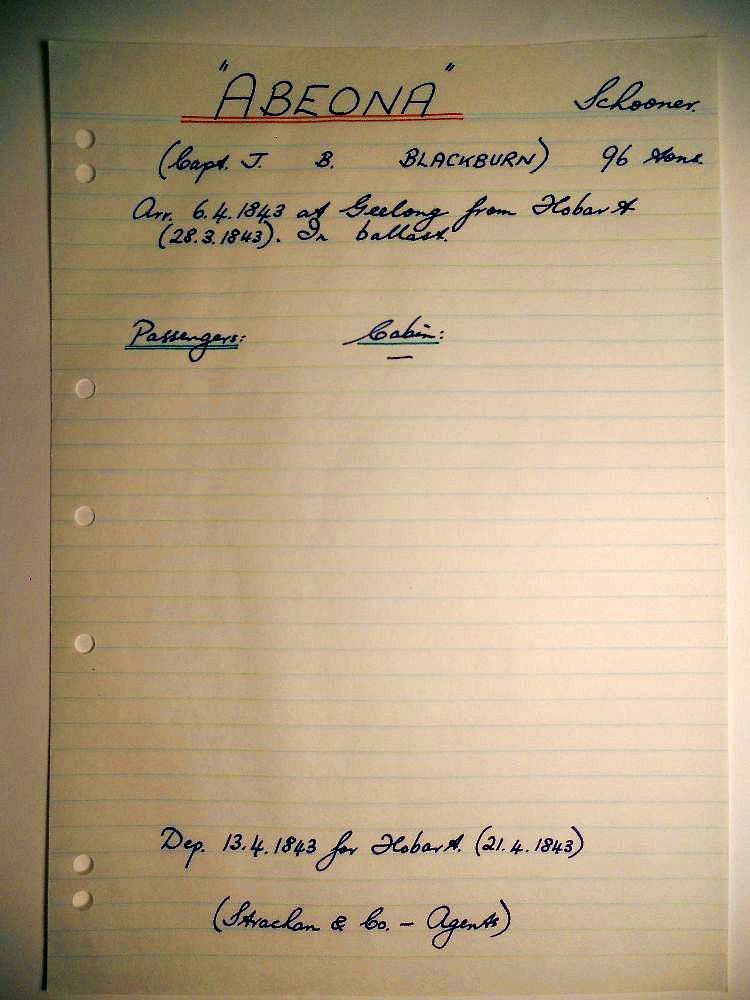 "ABEONA" Schooner.
(Capt. J. B. BLACKBURN) 96 tons.
Arr. 6.4.1843 at Geelong from Hobart
(28.3.1843). In ballast.
Passengers: Cabin:
—
Dep. 13.4.1843 for Hobart. (21.4.1843)
(Strachan & Co. – Agents)